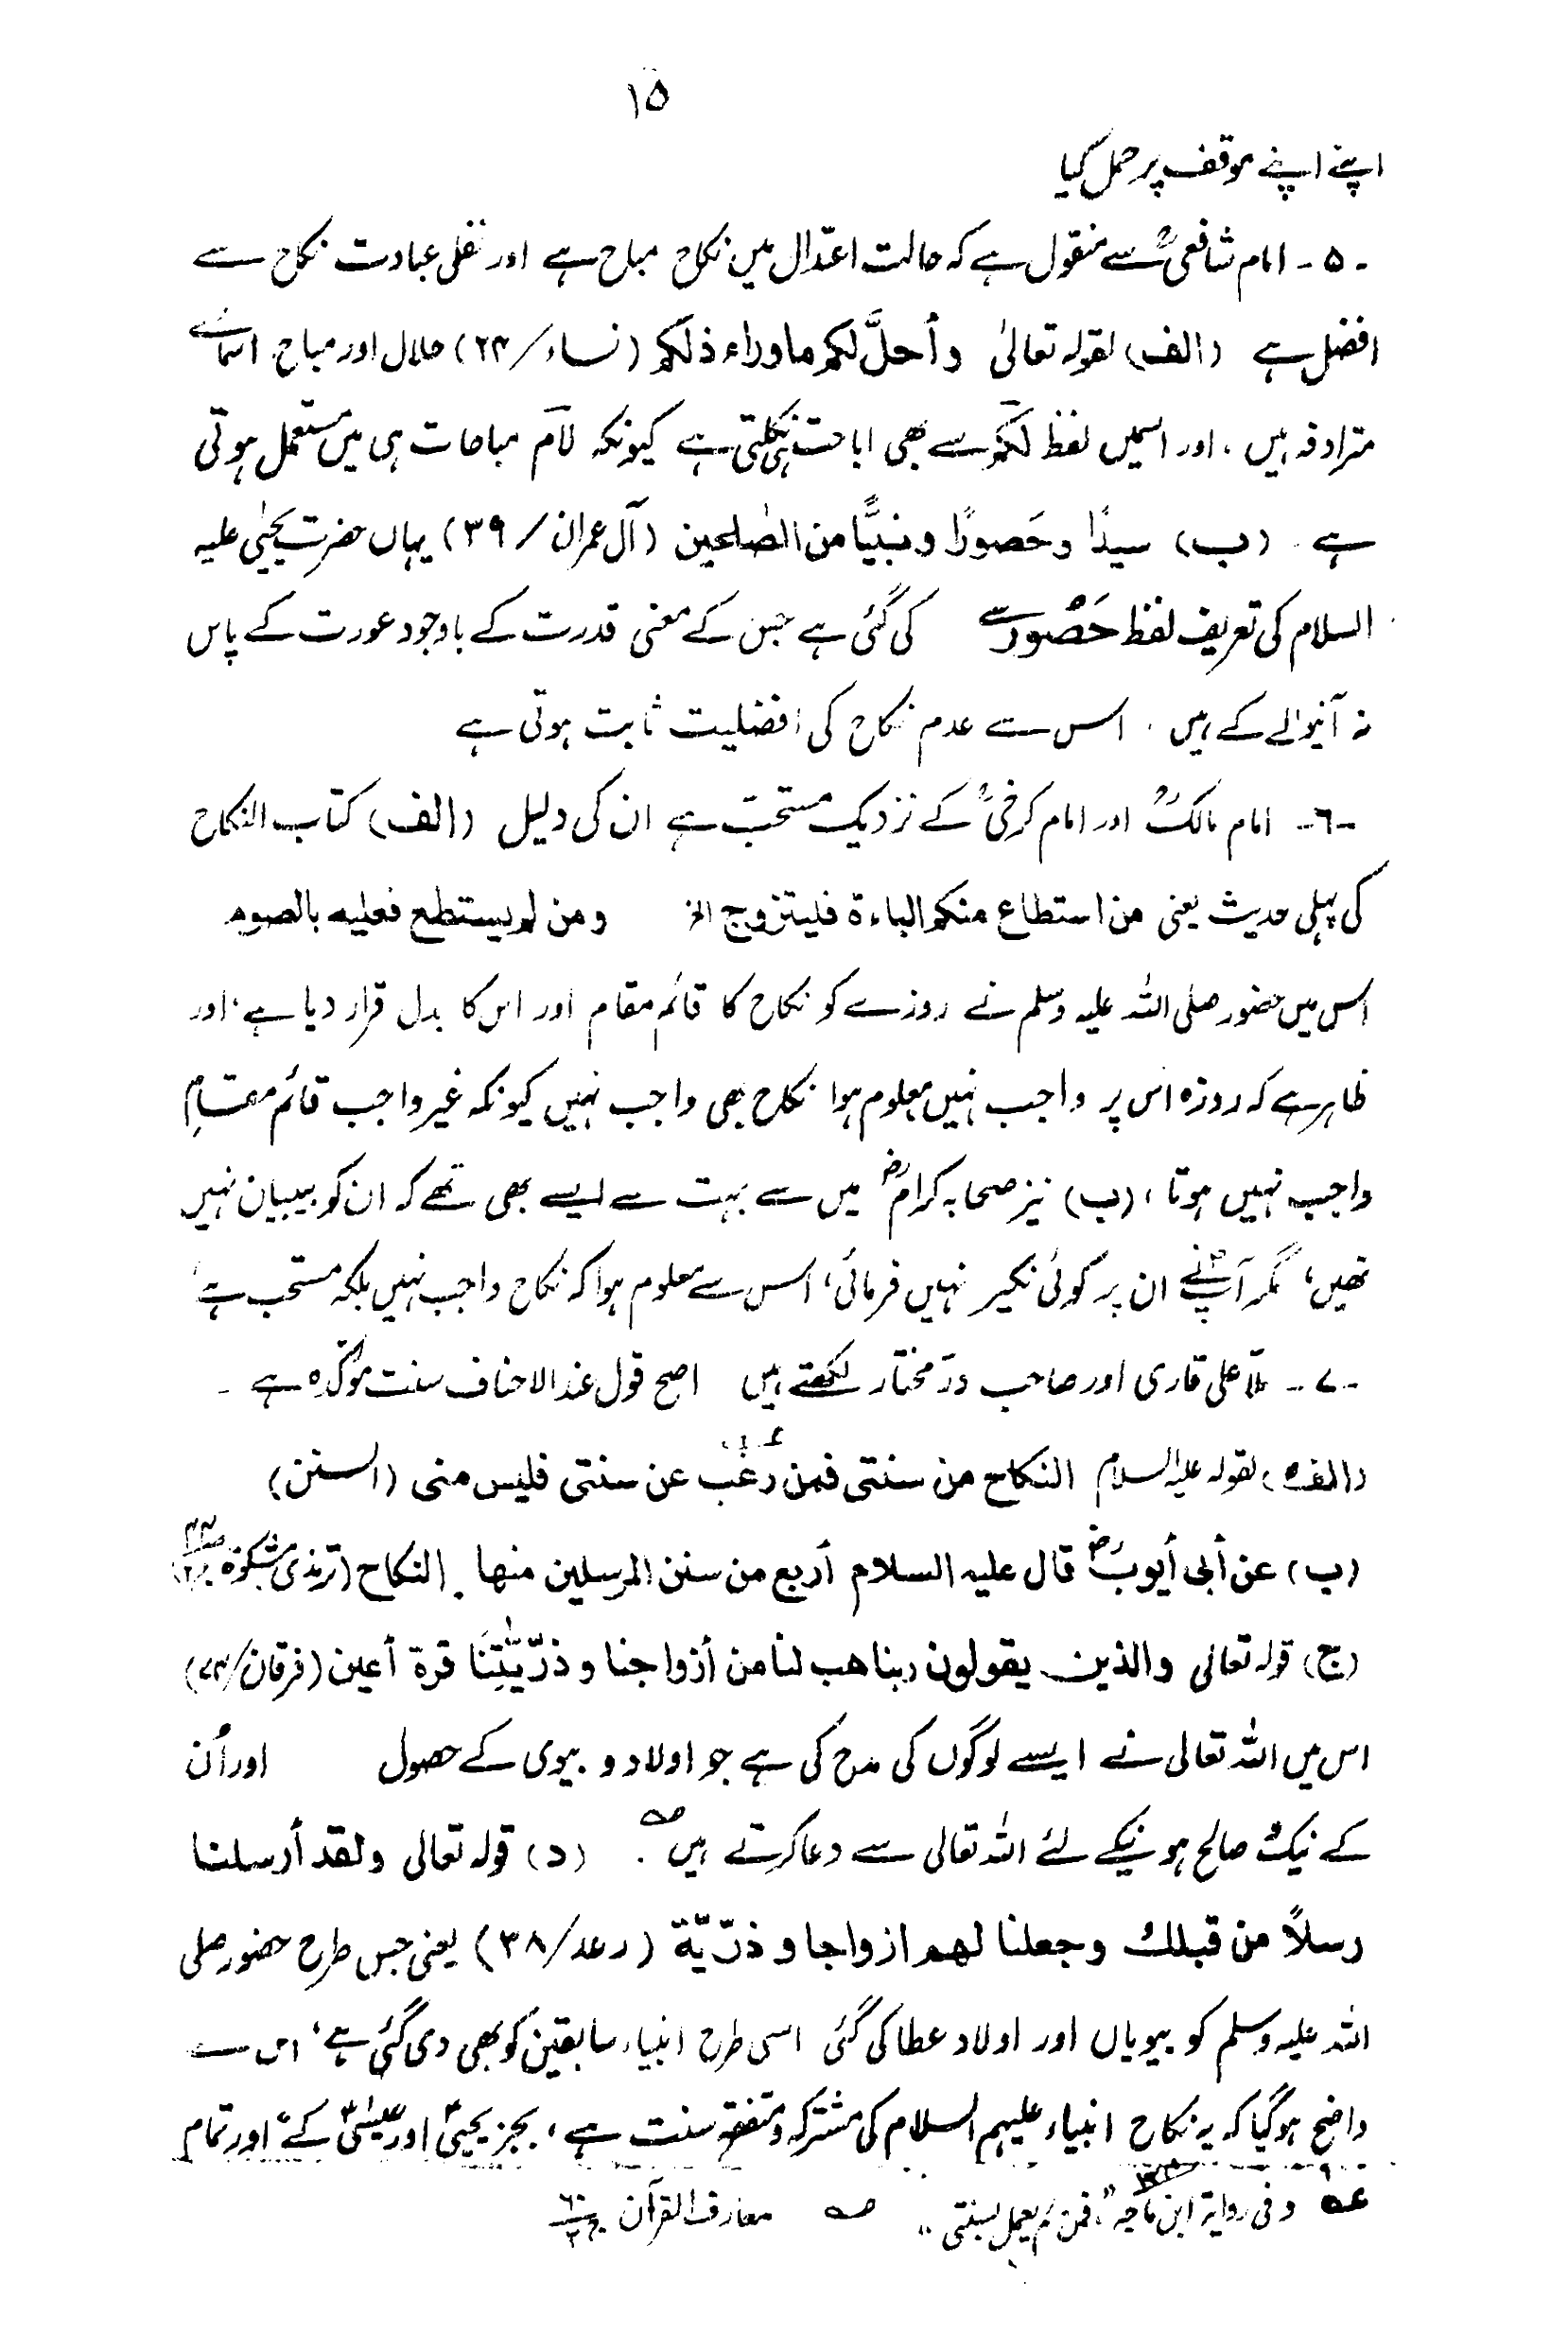 ١٥
اپنے اپنے موقف پر حمل کیا
-۵- امام شافعیؒ سے منقول ہے کہ حالت اعتدال میں نکاح مباح ہے اور نفلی عبادت نکاح سے
افضل ہے (الف) لقولہ تعالیٰ وأحلَّ لکم ماوراء ذلکم (نساء/۲۴) حلال اور مباح اسمائے
مترادفہ ہیں، اور اسمیں لفظ لَکُم سے بھی اباحت ہی نکلتی ہے کیونکہ لآم مباحات ہی میں مستعمل ہوتی
ہے (ب) سیدًا وحَصورًا ونبیًّا من الصٰلحین (آل عمران/۳۹) یہاں حضرت یحیٰی علیہ
السلام کی تعریف لفظ حَصُور سے کی گئی ہے جس کے معنی قدرت کے باوجود عورت کے پاس
نہ آنیوالے کے ہیں، اس سے عدم نکاح کی افضلیت ثابت ہوتی ہے
-٦- امام مالکؒ اور امام کرخیؒ کے نزدیک مستحب ہے ان کی دلیل (الف) کتاب النکاح
کی پہلی حدیث یعنی من استطاع منکم الباءة فلیتزوج الخ ومن لم یستطع فعلیہ بالصوم
اس میں حضور صلی اللہ علیہ وسلم نے روزے کو نکاح کا قائم مقام اور اس کا بدل قرار دیا ہے، اور
ظاہر ہے کہ روزہ اس پر واجب نہیں معلوم ہوا نکاح بھی واجب نہیں کیونکہ غیر واجب قائم مقام
واجب نہیں ہوتا، (ب) نیز صحابہ کرامؓ میں سے بہت سے ایسے بھی تھے کہ ان کو بیبیاں نہیں
تھیں، مگر آپؐ نے ان پر کوئی نکیر نہیں فرمائی، اس سے معلوم ہوا کہ نکاح واجب نہیں بلکہ مستحب ہے،
-۷- ملّا علی قاری اور صاحب درّ مختار لکھتے ہیں اصح قول عند الاحناف سنت مؤکدہ ہے -
(الف) لقولہ علیہ السلام النکاح من سنتی فمن رغب عن سنتی فلیس منی (السنن)
(ب) عن أبی أیوبؓ قال علیہ السلام أربع من سنن المرسلین منها النکاح (ترمذی مشکوٰۃ
(ج) قولہ تعالی والذین یقولون ربنا هب لنا من أزواجنا وذرّیّٰتِنَا قرة أعین (فرقان/۷۴)
اس میں اللہ تعالی نے ایسے لوگوں کی مدح کی ہے جو اولاد و بیوی کے حصول اور اُن
کے نیک صالح ہونیکے لئے اللہ تعالی سے دعا کرتے ہیں صہ . (د) قولہ تعالی ولقد أرسلنا
رسلاً من قبلك وجعلنا لهم ازواجا وذرّیّة (رعد/۳۸) یعنی جس طرح حضور صلی
اللہ علیہ وسلم کو بیویاں اور اولاد عطا کی گئی اسی طرح انبیاء سابقین کو بھی دی گئی ہے، اس سے
واضح ہوگیا کہ یہ نکاح انبیاء علیہم السلام کی مشترکہ و متفقہ سنت ہے، بجز یحییؑ اور عیسٰیؑ کے، اور تمام
عہ وفی روایة ابن ماجہ "فمن لم یعمل بسنتی" صہ معارف القرآن